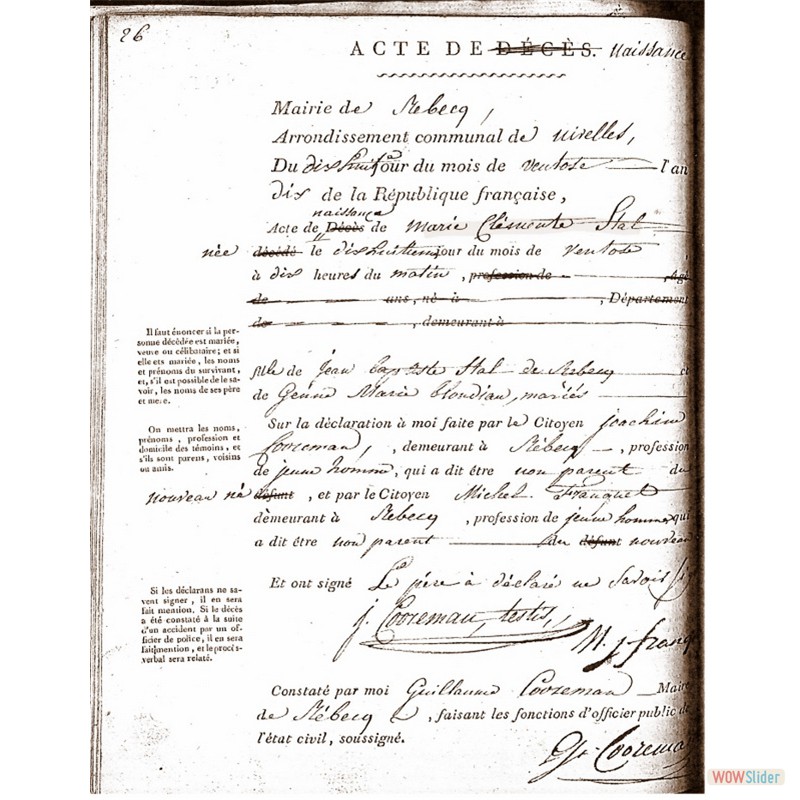 26
ACTE DE DÉCÈS. naissance
Mairie de Rebecq,
Arrondissement communal de nivelles,
Du dixhuit jour du mois de ventose l'an
dix de la République française,
naissance
Acte de Décès de marie Clémente Stal
née décédé le dixhuitieme jour du mois de ventose
à dix heures du matin, profession de , âgé
de ans, né à , Département
de , demeurant à
Il faut énoncer si la per-
sonne décédée est mariée,
veuve ou célibataire; et si
elle ets mariée, les noms
et prénoms du survivant,
et, s'il est possible de le sa-
voir, les noms de ses père
et mere.
fille de jean baptiste Stal de Rebecq et
de Marie blondiau, mariés
On mettra les noms,
prénoms, profession et
domicile des témoins, et
s'ils sont parens, voisins
ou amis.
Sur la déclaration à moi faite par le Citoyen joachim
Coozeman, , demeurant à Rebecq , profession
de jeune homme, qui a dit être non parent du
nouveau né défunt, et par le Citoyen Michel Franquet
dèmeurant à Rebecq , profession de jeune homme qui
a dit être non parent du défunt nouveau
Si les déclarans ne sa-
vent signer, il en sera
fait mention. Si le décès
a été constaté à la suite
d'un accident par un of-
ficier de police, il en sera
fait mention, et le procès-
verbal sera relaté.
Et ont signé Le père à déclaré ne Savoir
j. Coozeman, testis,
M. j franq
Constaté par moi Guillaume Coozeman Maire
de Rébecq , faisant les fonctions d'officier public de
l'état civil, soussigné.
G. Coozeman
WOWSlider